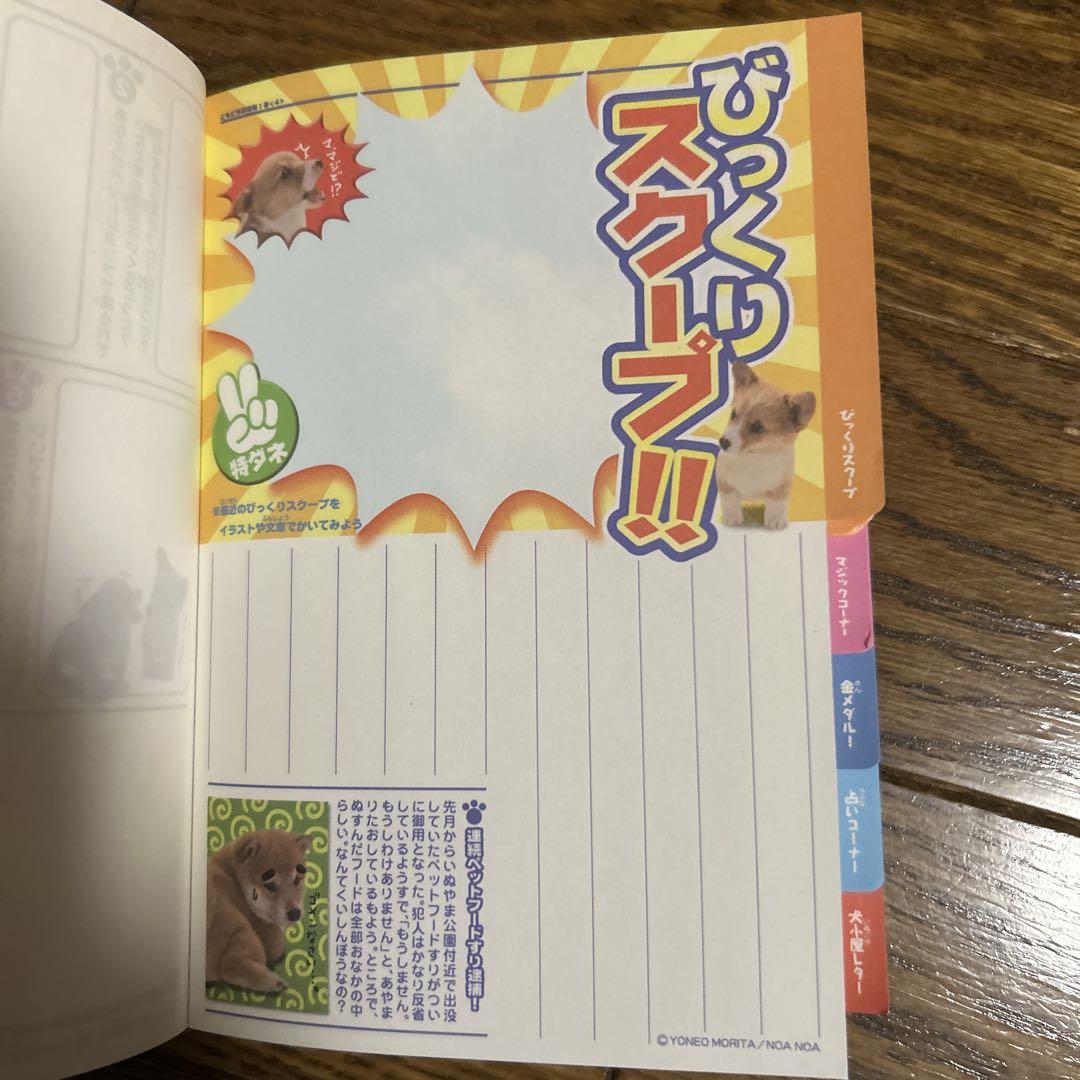 びっくり
スクープ!!
マ、マジで!?
特ダネ
※最近のびっくりスクープを
イラストや文章でかいてみよう
びっくりスクープ
マジックコーナー
金メダル!
占いコーナー
犬小屋レター
連続ペットフードすり逮捕!
先月からいぬやま公園付近で出没
していたペットフードすりがつい
に御用となった。犯人はかなり反省
しているようすで、「もうしません。
もうしわけありません」と、あやま
りたおしているもよう。ところで、
ぬすんだフードは全部おなかの中
らしい。なんてくいしんぼうなの?
©YONEO MORITA/NOA NOA